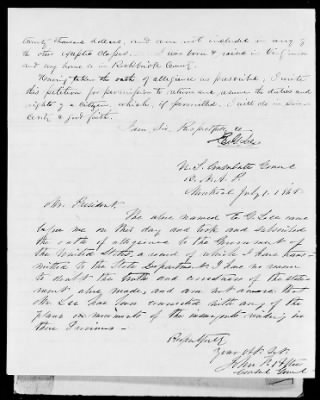 twenty thousand dollars, and am not included in any of
the other excepted classes. I was born & raised in Virginia
and my home is in Rockbridge County.
Having taken the oath of allegiance as prescribed, I write
this petition for permission to return and assume the duties and
rights of a citizen, which, if permitted, I will do in sin-
cerity & good faith.
I am, Sir, Respectfully &c
Lee
U. S. Consulate General
B. N. A. P.
Montreal July 1. 1865
Mr. President
The above named Lee came
before me on this day and took and subscribed
the oath of allegiance to the Government of
the United States, a record of which I have trans-
mitted to the State Department. I have no reason
to doubt the truth and exactness of the state-
ment above made, and am not aware that
Mr Lee has been connected with any of the
plans or movements of the insurgents making in
these Provinces.
Respectfully
Your obt Svt.
John F. Potter
Consul General